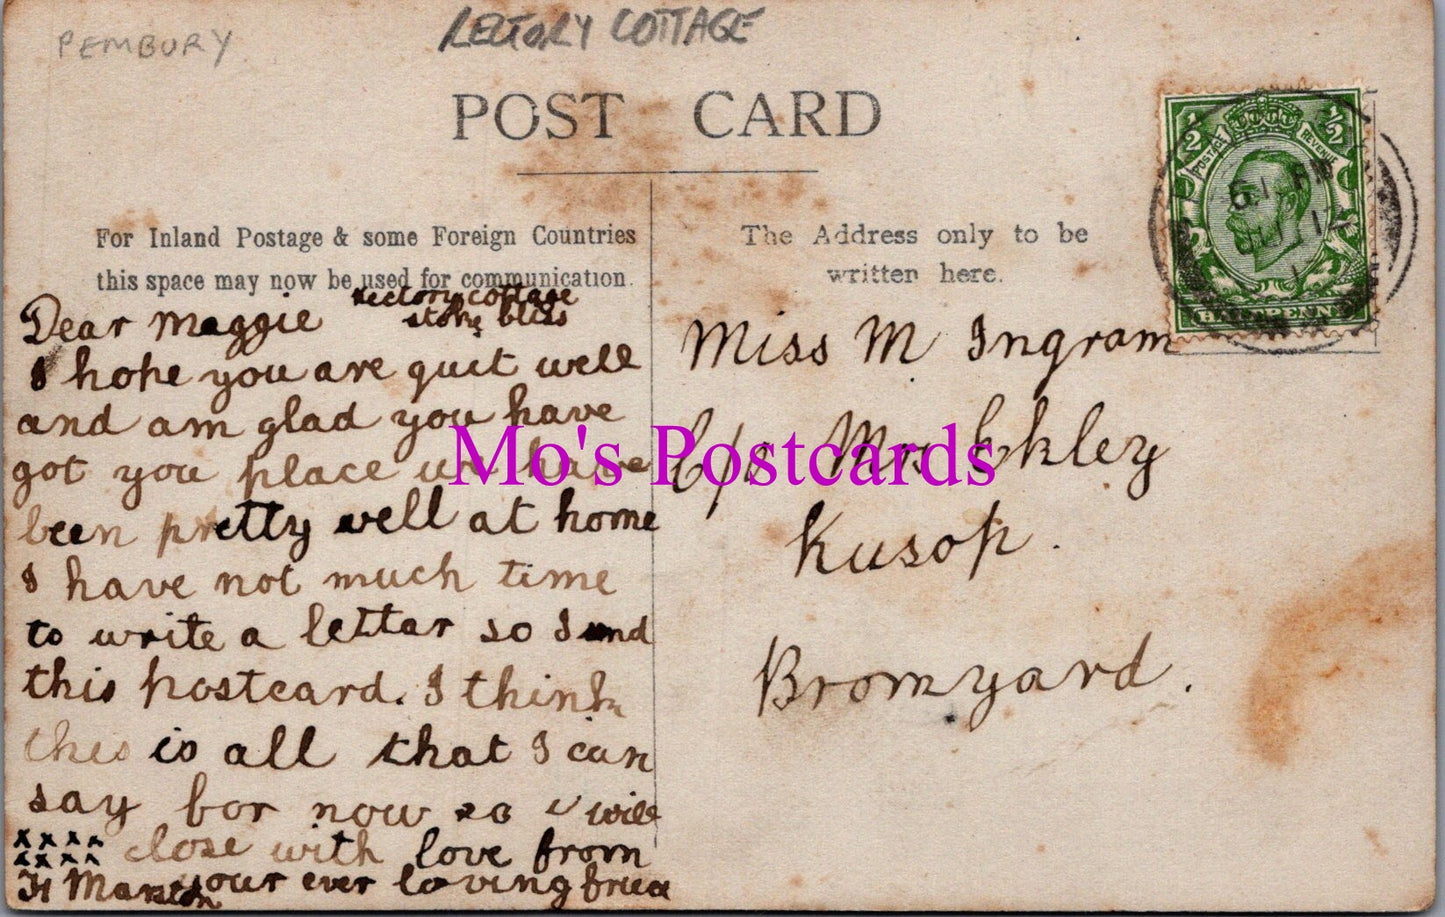 PEMBURY
RECTORY COTTAGE
POST CARD
For Inland Postage & some Foreign Countries
this space may now be used for communication.
The Address only to be
written here.
½ ½
POSTAGE REVENUE
HALFPENNY
rectory cottage
stoke bliss
Dear Maggie
I hope you are quit well
and am glad you have
got you place we have
been pretty well at home
I have not much time
to write a lettar so I send
this postcard. I think
this is all that I can
say for now so I will
xxxx close with love from
xxxx your ever loving
H Marston
Miss M Ingram
C/o Mrs Eckley
Kusop.
Bromyard.
Mo's Postcards